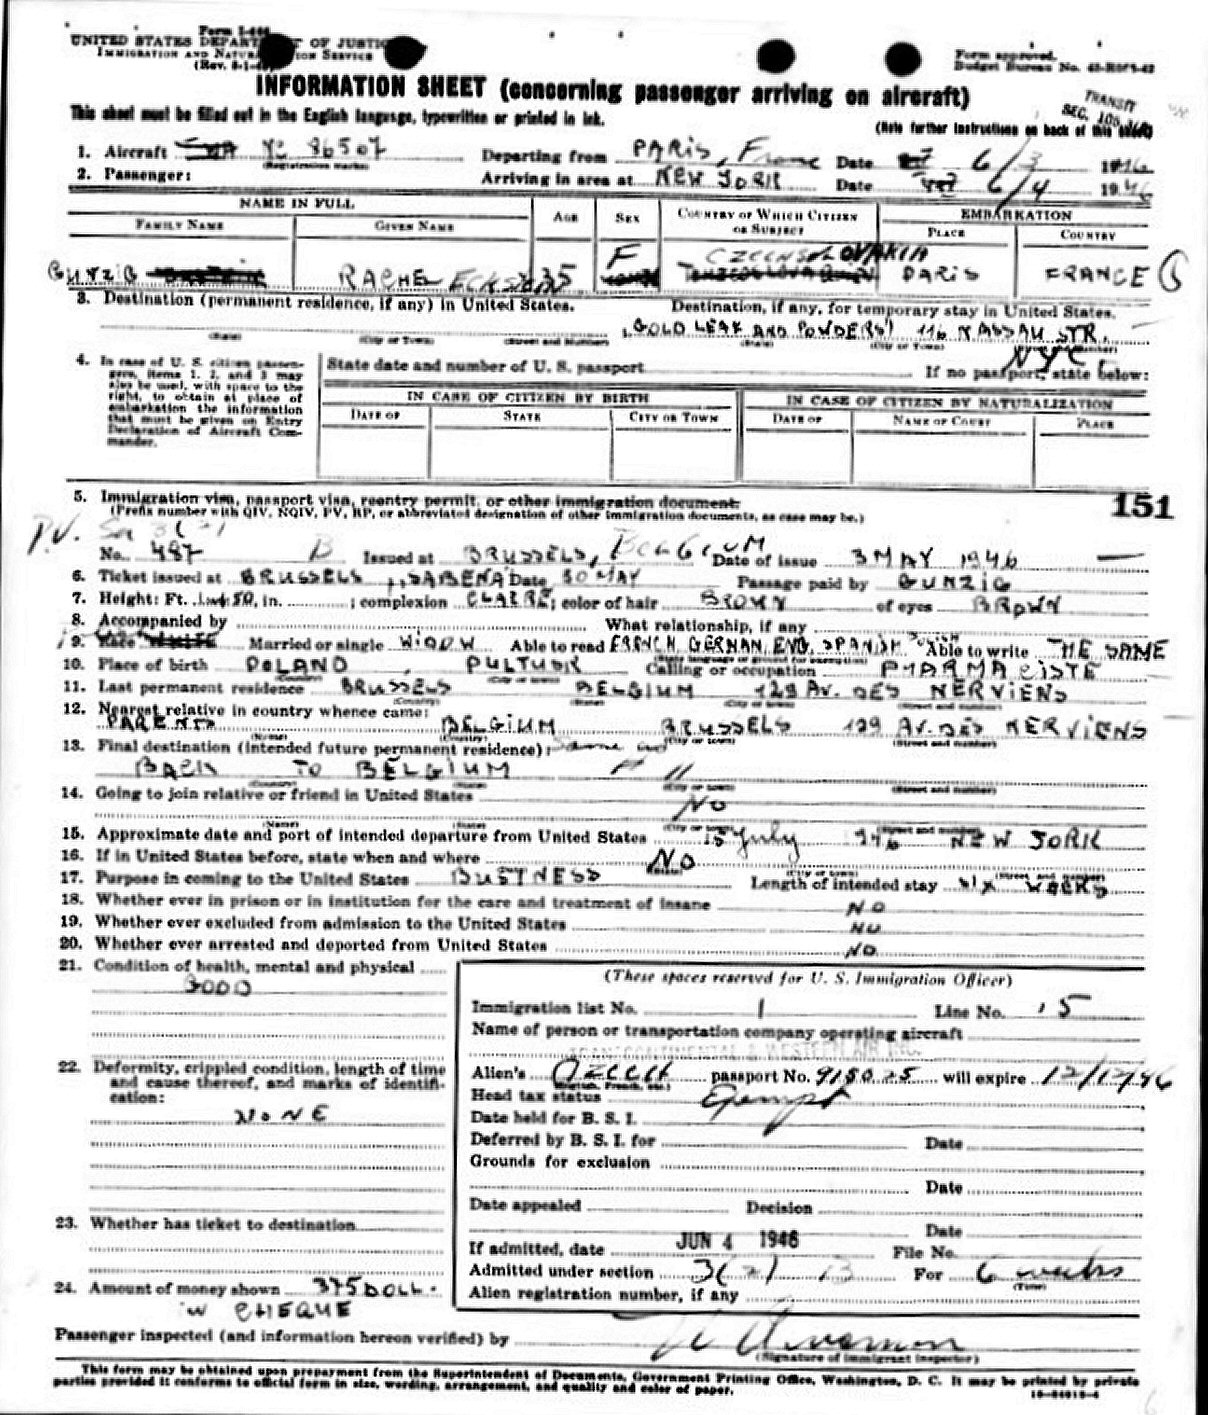 Form I-466
UNITED STATES DEPARTMENT OF JUSTICE
IMMIGRATION AND NATURALIZATION SERVICE
(Rev. 8-1-45)
Form approved.
Budget Bureau No. 43-R051-42
INFORMATION SHEET (concerning passenger arriving on aircraft)
TRANSIT
SEC.
This sheet must be filled out in the English language, typewritten or printed in ink.
(Note further instructions on back of this sheet)
1. Aircraft 86507 Departing from PARIS, France Date 6/3 1946
(Registration marks)
2. Passenger: Arriving in area at NEW YORK Date 6/4 1946
NAME IN FULL AGE SEX COUNTRY OF WHICH CITIZEN OR SUBJECT EMBARKATION
FAMILY NAME GIVEN NAME PLACE COUNTRY
GUNZIG RACHEL ECKSTEIN 35 F CZECHSLOVAKIA PARIS FRANCE
3. Destination (permanent residence, if any) in United States. Destination, if any, for temporary stay in United States.
"GOLD LEAF AND POWDERS" 116 NASSAU STR.
(State) (City or Town) (Street and Number) (State) (City or Town) (Street and Number)
NYC
4. In case of U. S. citizen passengers, items 1, 2, and 3 may also be used, with space to the right, to obtain at place of embarkation the information that must be given on Entry Declaration of Aircraft Commander.
State date and number of U. S. passport
If no passport, state below:
IN CASE OF CITIZEN BY BIRTH IN CASE OF CITIZEN BY NATURALIZATION
DATE OF STATE CITY OR TOWN DATE OF NAME OF COURT PLACE
5. Immigration visa, passport visa, reentry permit, or other immigration document:
151
(Prefix number with QIV, NQIV, PV, RP, or abbreviated designation of other immigration documents, as case may be.)
P.V.
No. 487 B Issued at BRUSSELS, BELGIUM Date of issue 3 MAY 1946
6. Ticket issued at BRUSSELS, "SABENA" Date 30 MAY Passage paid by GUNZIG
7. Height: Ft. in. ; complexion CLAIRE; color of hair BROWN of eyes BROWN
8. Accompanied by What relationship, if any
9. Race WHITE Married or single WIDOW Able to read FRENCH, GERMAN, ENG, SPANISH POLISH Able to write THE SAME
(State language or ground for exemption)
10. Place of birth POLAND, PULTUSK Calling or occupation PHARMACISTE
(Country) (City or town)
11. Last permanent residence BRUSSELS BELGIUM 129 AV. DES NERVIENS
(Country) (State) (City or town) (Street and number)
12. Nearest relative in country whence came:
PARENTS BELGIUM BRUSSELS 129 AV. DES NERVIENS
(Name) (Country) (City or town) (Street and number)
13. Final destination (intended future permanent residence): Same as
BACK TO BELGIUM # 11
(Country) (State) (City or town) (Street and number)
14. Going to join relative or friend in United States
NO
(Name) (State) (City or town) (Street and number)
15. Approximate date and port of intended departure from United States 15 July 1946 NEW YORK
16. If in United States before, state when and where NO
(State) (City or town) (Street and number)
17. Purpose in coming to the United States BUSINESS Length of intended stay SIX WEEKS
18. Whether ever in prison or in institution for the care and treatment of insane NO
19. Whether ever excluded from admission to the United States NO
20. Whether ever arrested and deported from United States NO
21. Condition of health, mental and physical
GOOD
22. Deformity, crippled condition, length of time and cause thereof, and marks of identification:
NONE
23. Whether has ticket to destination
24. Amount of money shown 375 DOLL.
IN CHEQUE
(These spaces reserved for U. S. Immigration Officer)
Immigration list No. 1 Line No. 15
Name of person or transportation company operating aircraft
TRANSCONTINENTAL & WESTERN AIR INC.
Alien's CZECH passport No. 9150.25 will expire 12/12/46
(English, French, etc.)
Head tax status Exempt
Date held for B. S. I.
Deferred by B. S. I. for Date
Grounds for exclusion
Date
Date appealed Decision
Date
If admitted, date JUN 4 1946 File No.
Admitted under section 3(2) B For 6 weeks
(Time)
Alien registration number, if any
Passenger inspected (and information hereon verified) by
(Signature of immigrant inspector)
This form may be obtained upon prepayment from the Superintendent of Documents, Government Printing Office, Washington, D. C. It may be printed by private
parties provided it conforms to official form in size, wording, arrangement, and quality and color of paper.